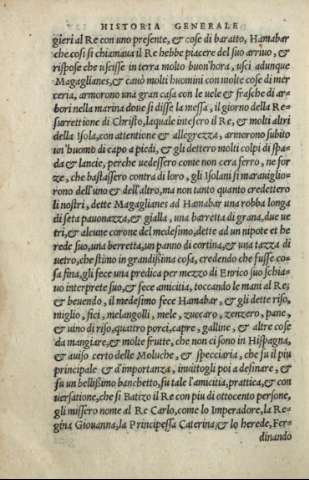 HISTORIA GENERALE
gieri al Re con uno presente, & cose di baratto, Hamabar
che cosi si chiamaua il Re hebbe piacere del suo arriuo, &
rispose che vscisse in terra molto buon'hora, vsci adunque
Magaglianes, & cauò molti huomini con molte cose di mer
ceria, armorono una gran casa con le uele & frasche di ar
bori nella marina doue si disse la messa, il giorno della Re
surrettione di Christo, laquale intesero il Re, & molti altri
della Isola, con attentione & allegrezza, armorono subito
un'huomo di capo a piedi, & gli dettero molti colpi di spa
da & lancie, perche uedessero come non cera ferro, ne for
ze, che bastassero contra di loro, gli Isolani si marauiglio
rono dell'uno & dell'altro, ma non tanto quanto credettero
li nostri, dette Magaglianes ad Hamabar una robba longa
di seta pauonazza, & gialla, una barretta di grana, due ue
tri, & alcune corone del medesimo, dette ad un nipote et he
rede suo, una berretta, un panno di cortina, & una tazza di
uetro, che stino in grandissima cosa, credendo che fusse co
sa fina, gli fece una predica per mezzo di Enrico suo schia-
uo interprete suo, & fece amicitia, toccando le mani al Re,
& beuendo, il medesimo fece Hamabar, & gli dette riso,
miglio, fici, melangolli, mele, zuccaro, zenzero, pane,
& uino di riso, quattro porci, capre, galline, & altre cose
da mangiare, & molte frutte, che non ci sono in Hispagna,
& auiso certo delle Moluche, & specciaria, che fu il piu
principale & d'importanza, inuitogli poi a desinare, &
fu un bellissimo banchetto, fu tale l'amicitia, prattica, & con
uersatione, che si Batizo il Re con piu di ottocento persone,
gli missero nome al Re Carlo, come lo Imperadore, la Re-
gina Giouanna, la Principessa Caterina, & lo herede, Fer-
dinando